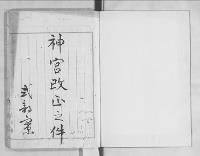 神宮改正之件
式部寮